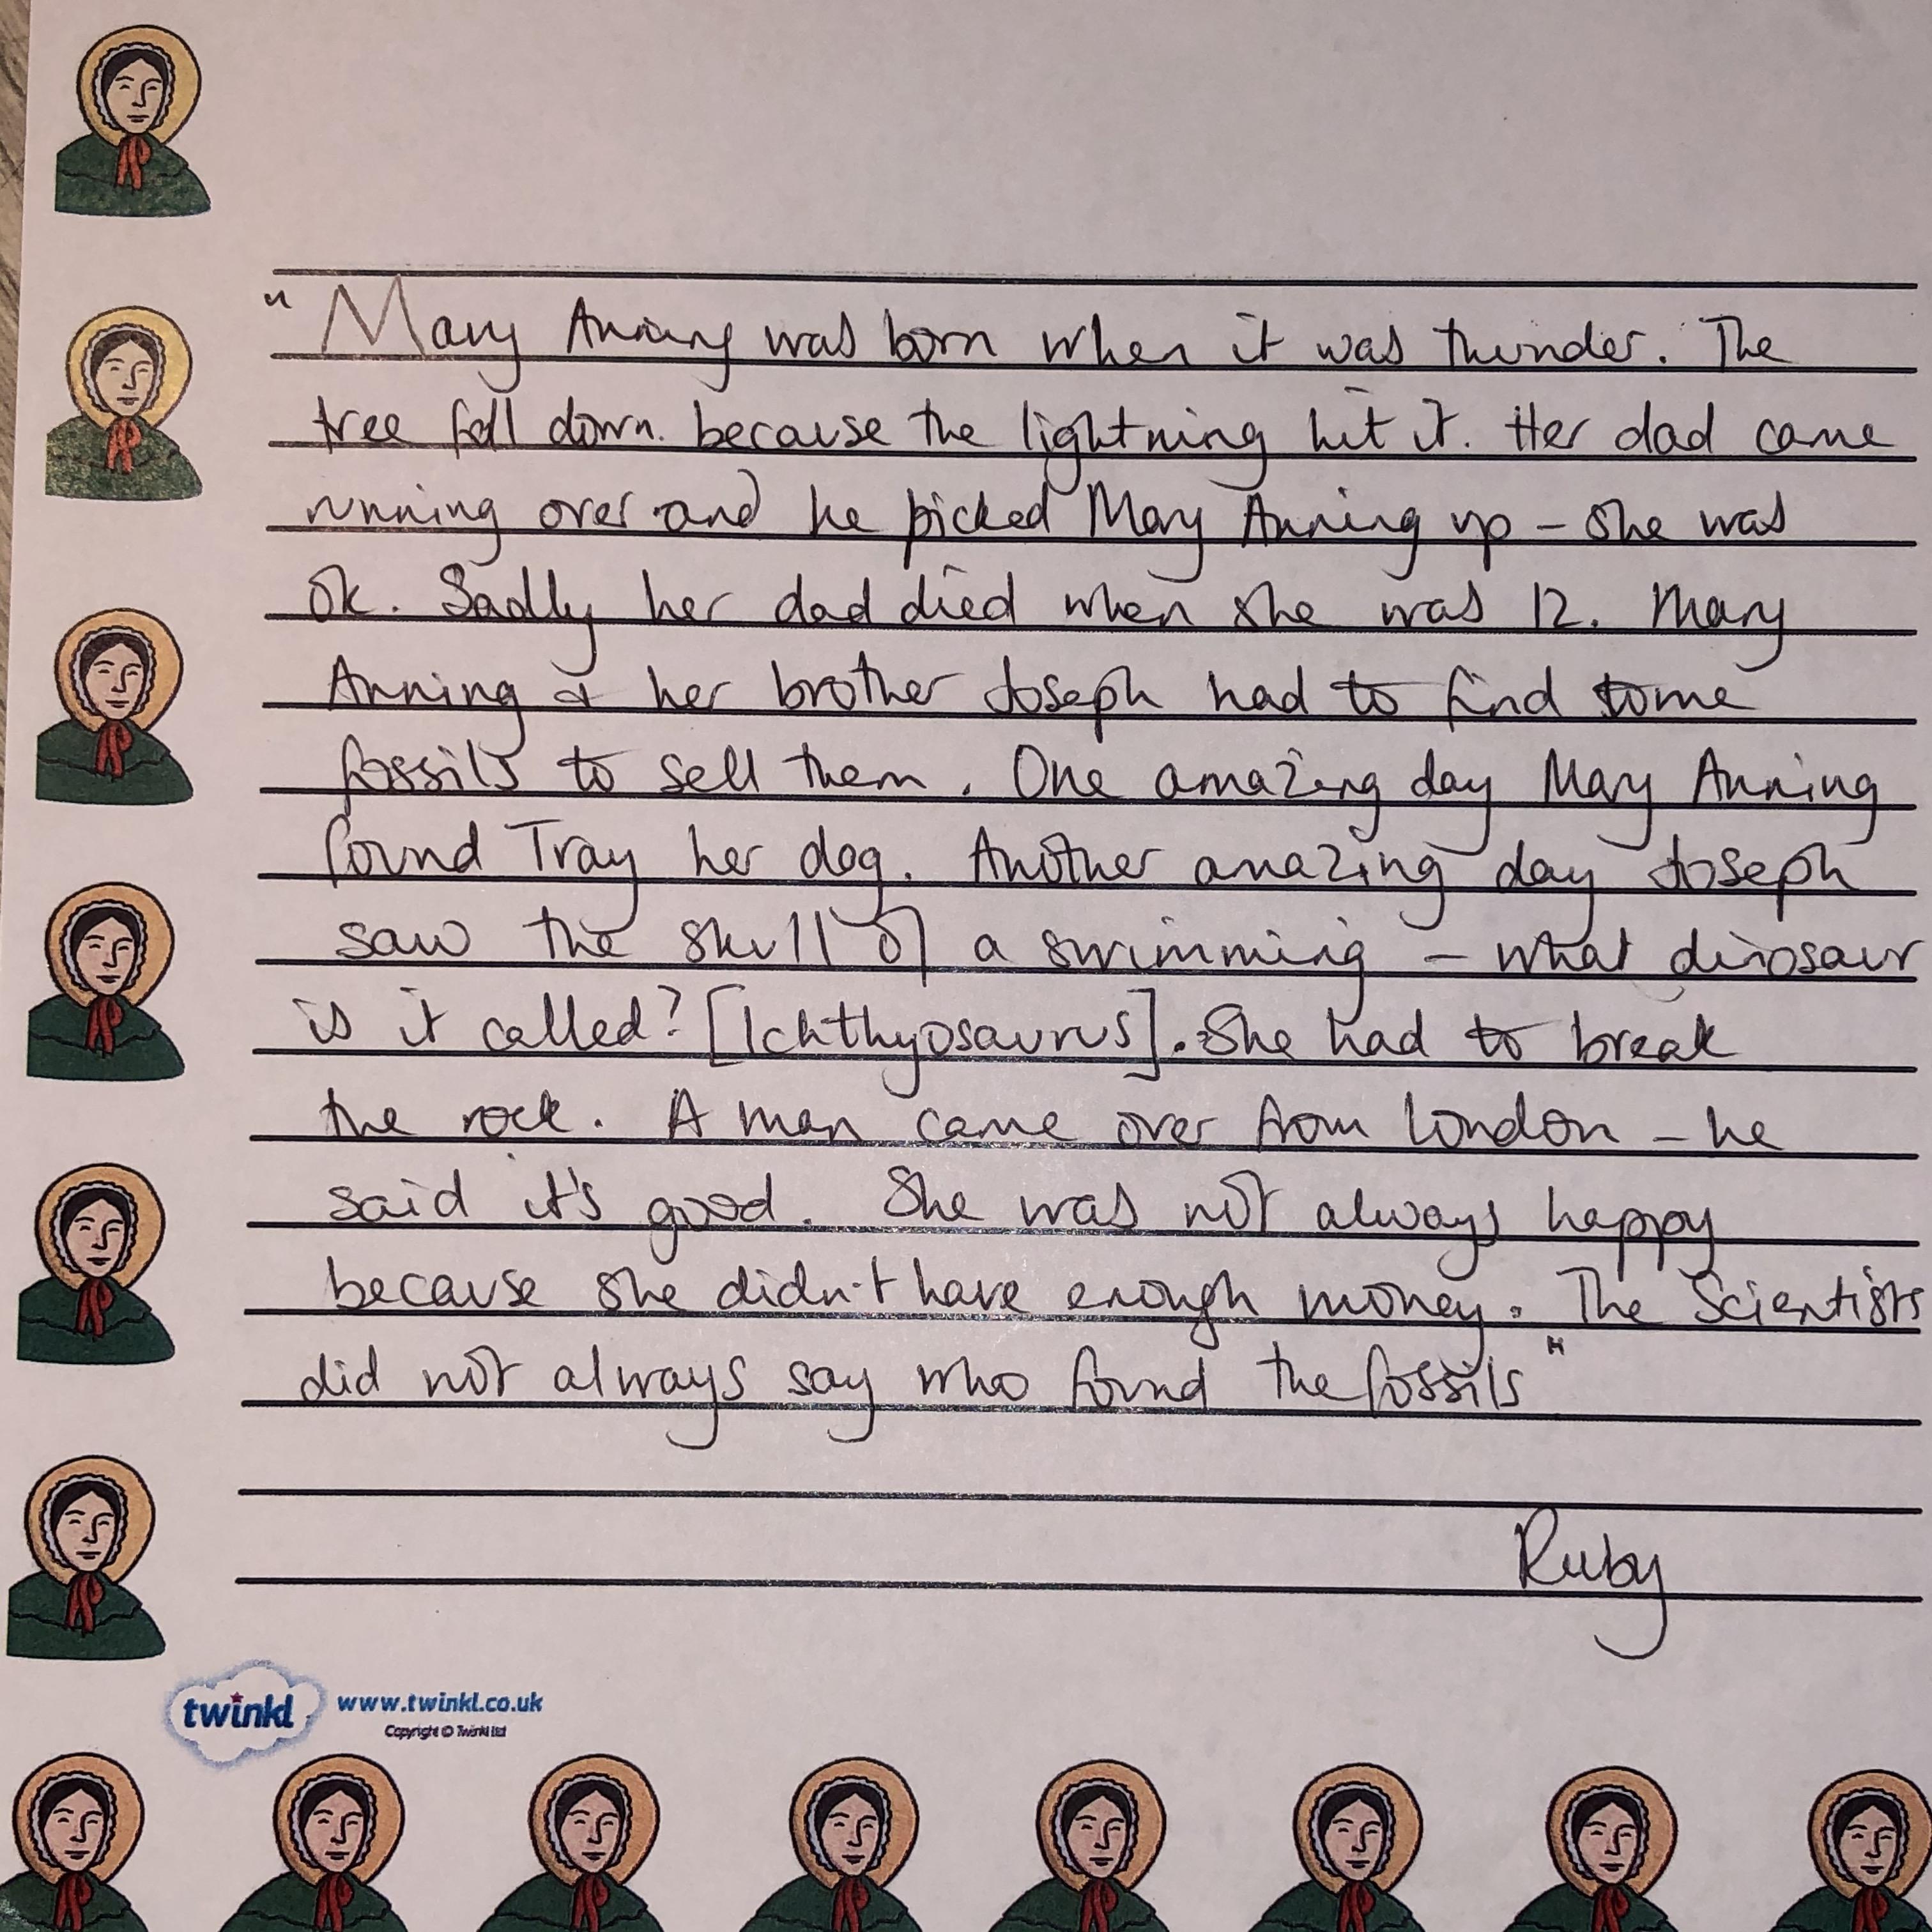 " Mary Anning was born when it was thunder. The
tree fell down. because the lightning hit it. Her dad came
running over and he picked Mary Anning up - she was
ok. Sadly her dad died when she was 12. Mary
Anning & her brother Joseph had to find some
fossils to sell them. One amazing day Mary Anning
found Tray her dog. Another amazing day Joseph
saw the skull of a swimming - what dinosaur
is it called? [Ichthyosaurus]. She had to break
the rock. A man came over from London - he
said it's good. She was not always happy
because she didn't have enough money. The Scientists
did not always say who found the fossils "
Ruby
twinkl www.twinkl.co.uk
Copyright © Twinkl Ltd